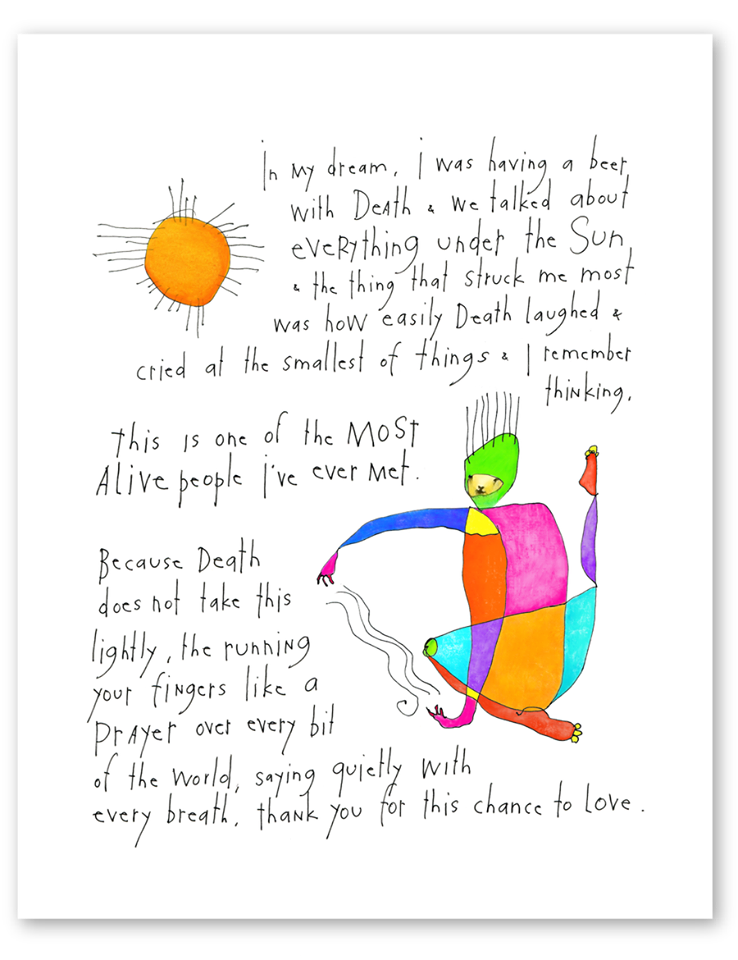 In my dream, I was having a beer
with Death & we talked about
everything under the Sun
& the thing that struck me most
was how easily Death laughed &
cried at the smallest of things & I remember
thinking,
this is one of the MOSt
Alive people i've ever met.
Because Death
does not take this
lightly, the running
your fingers like a
prayer over every bit
of the world, saying quietly with
every breath, thank you for this chance to love.